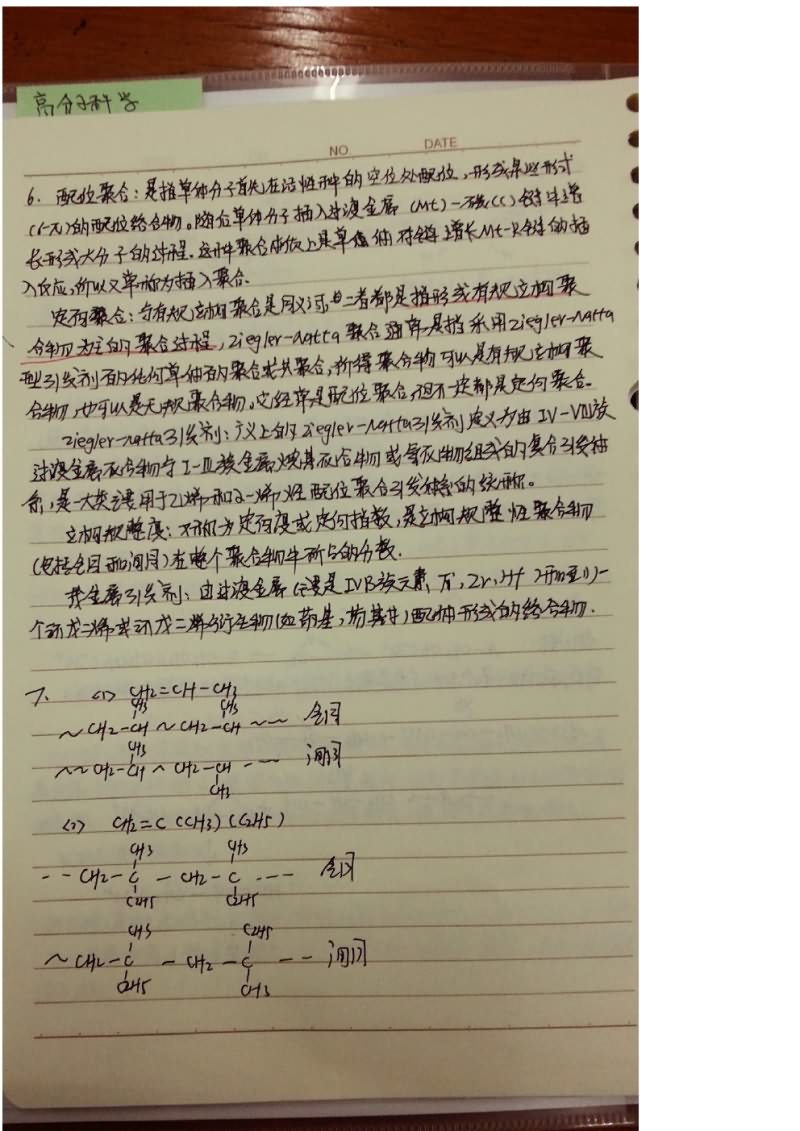 高分子科学
NO. DATE
6. 配位聚合：是指单体分子首先在活性种的空位处配位，形成某些形式
(σ-π)的配位络合物。随后单体分子插入过渡金属(Mt)-碳(C)链中增
长形成大分子的过程。这种聚合本质上是单体对增长Mt-R链的插
入反应，所以又常称为插入聚合。
定向聚合：与有规立构聚合是同义词，二者都是指形成有规立构聚
合物为主的聚合过程，Ziegler-Natta聚合通常是指采用Ziegler-Natta
型引发剂的任何单体的聚合或共聚合，所得聚合物可以是有规立构聚
合物，也可以是无规聚合物。它经常是配位聚合，但不一定都是定向聚合。
Ziegler-Natta引发剂：广义上的Ziegler-Natta引发剂定义为由IV-VIII族
过渡金属化合物与I-III族金属烷基化合物或氢化物组成的复合引发体
系，是一大类主要用于乙烯和α-烯烃配位聚合引发体系的统称。
立构规整度：又称为定向度或定向指数，是立构规整性聚合物
(包括全同和间同)在整个聚合物中所占的分数。
茂金属引发剂：由过渡金属(主要是IVB族元素Ti, Zr, Hf)和至少一
个环戊二烯或环戊二烯衍生物(如茚基，芴基等)配体形成的络合物.
7. (1) CH2=CH-CH3
CH3 CH3
～CH2-CH～CH2-CH～～ 全同
CH3
～～CH2-CH～CH2-CH--- 间同
CH3
(2) CH2=C(CH3)(C2H5)
CH3 CH3
--CH2-C-CH2-C--- 全同
C2H5 C2H5
CH3 C2H5
～CH2-C-CH2-C-- 间同
C2H5 CH3